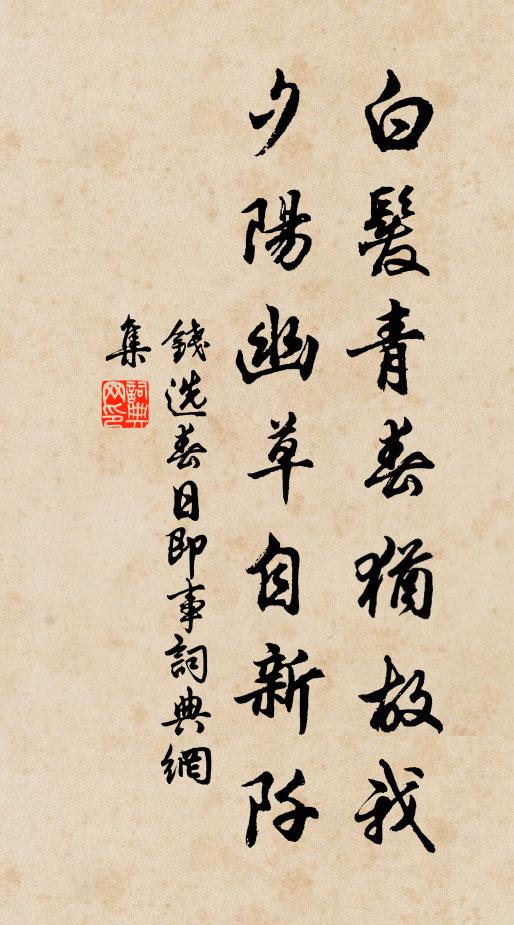 白髮青春猶故我
夕陽幽草自新阡
錢选春日即事詞典網
集
詞典網印